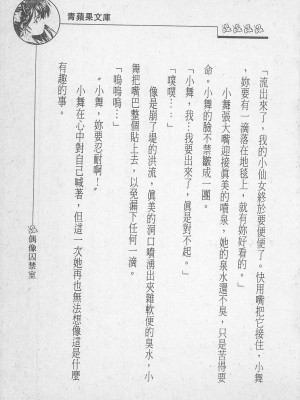 青蘋果文庫
「流出來了，我的小仙女終於要便便了。快用嘴把它接住，小舞
，妳要有一滴落在地毯上，就有妳好看的。」
小舞張大嘴迎接眞美的噴泉，她的泉水還不臭，只是苦得要
命。小舞的臉不禁皺成一團。
「小舞，我…我要出來了，眞是對不起。」
「噗噗……」
像是崩了堤的洪流，眞美的洞口噴湧出夾雜軟便的臭水，小
舞把嘴巴整個貼上去，以免漏下任何一滴。
「嗚嗚嗚…」
〝小舞，妳要忍耐啊！〞
小舞在心中對自己喊著，但這一次她再也無法想像這是什麼
有趣的事。
偶像囚禁室